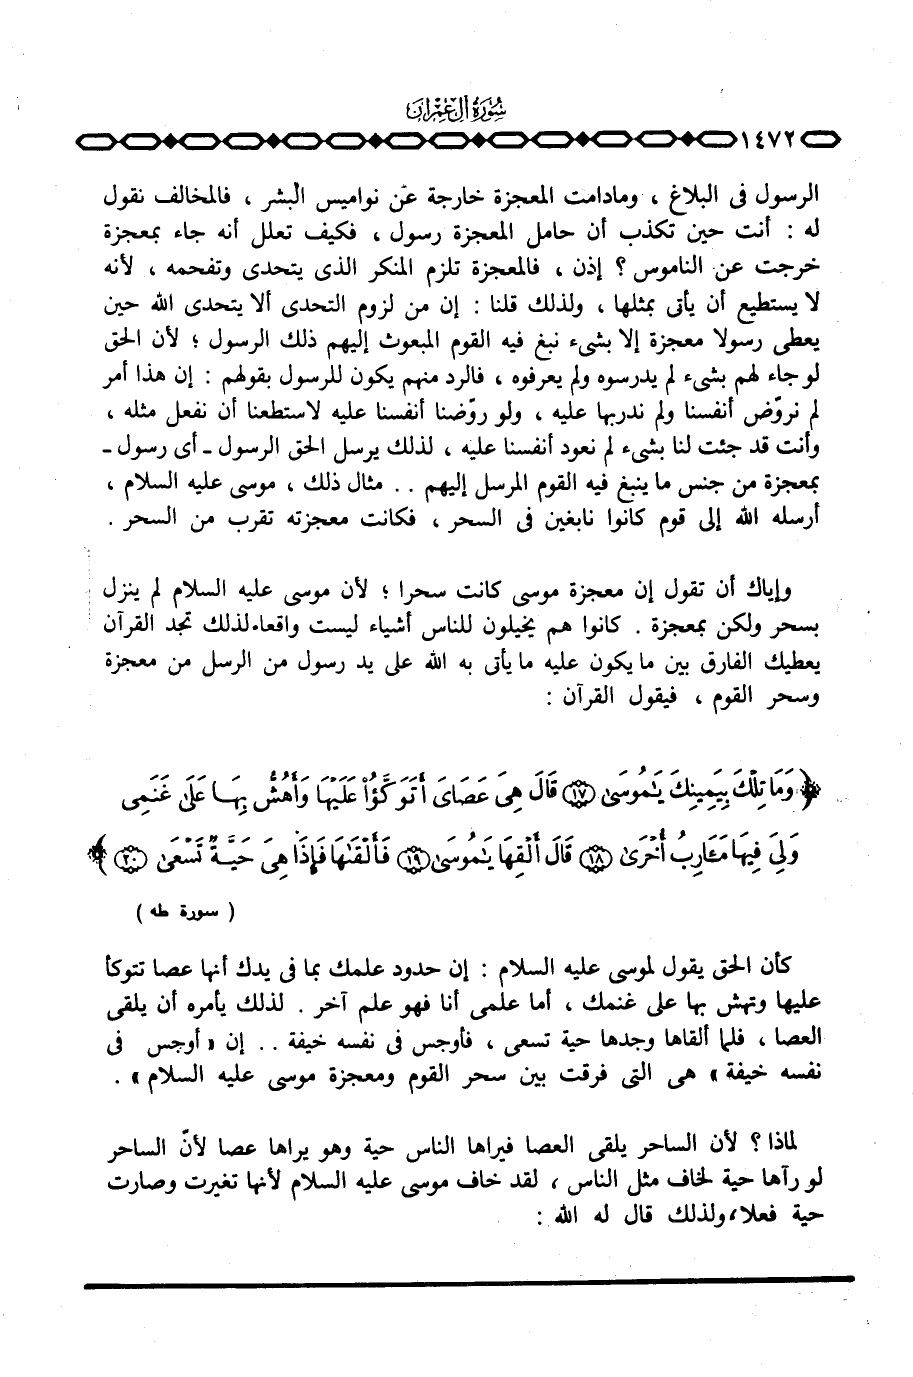 سُورَةُ آلِ عِمْرَانَ
١٤٧٢
الرسول فى البلاغ ، ومادامت المعجزة خارجة عن نواميس البشر ، فالمخالف نقول
له : أنت حين تكذب أن حامل المعجزة رسول ، فكيف تعلل أنه جاء بمعجزة
خرجت عن الناموس ؟ إذن ، فالمعجزة تلزم المنكر الذى يتحدى وتفحمه ، لأنه
لا يستطيع أن يأتى بمثلها ، ولذلك قلنا : إن من لزوم التحدى ألا يتحدى الله حين
يعطى رسولا معجزة إلا بشىء نبغ فيه القوم المبعوث إليهم ذلك الرسول ؛ لأن الحق
لو جاء لهم بشىء لم يدرسوه ولم يعرفوه ، فالرد منهم يكون للرسول بقولهم : إن هذا أمر
لم نروّض أنفسنا ولم ندربها عليه ، ولو روّضنا أنفسنا عليه لاستطعنا أن نفعل مثله ،
وأنت قد جئت لنا بشىء لم نعود أنفسنا عليه ، لذلك يرسل الحق الرسول ـ أى رسول ـ
بمعجزة من جنس ما ينبغ فيه القوم المرسل إليهم . . مثال ذلك ، موسى عليه السلام ،
أرسله الله إلى قوم كانوا نابغين فى السحر ، فكانت معجزته تقرب من السحر .
وإياك أن تقول إن معجزة موسى كانت سحرا ؛ لأن موسى عليه السلام لم ينزل
بسحر ولكن بمعجزة . كانوا هم يخيلون للناس أشياء ليست واقعا،لذلك تجد القرآن
يعطيك الفارق بين ما يكون عليه ما يأتى به الله على يد رسول من الرسل من معجزة
وسحر القوم ، فيقول القرآن :
﴿ وَمَا تِلْكَ بِيَمِينِكَ يَٰمُوسَىٰ ۝١٧ قَالَ هِىَ عَصَاىَ أَتَوَكَّؤُا۟ عَلَيْهَا وَأَهُشُّ بِهَا عَلَىٰ غَنَمِى
وَلِىَ فِيهَا مَـَٔارِبُ أُخْرَىٰ ۝١٨ قَالَ أَلْقِهَا يَٰمُوسَىٰ ۝١٩ فَأَلْقَىٰهَا فَإِذَا هِىَ حَيَّةٌ تَسْعَىٰ ۝٢٠ ﴾
( سورة طه )
كأن الحق يقول لموسى عليه السلام : إن حدود علمك بما فى يدك أنها عصا تتوكأ
عليها وتهش بها على غنمك ، أما علمى أنا فهو علم آخر . لذلك يأمره أن يلقى
العصا ، فلما ألقاها وجدها حية تسعى ، فأوجس فى نفسه خيفة . . إن « أوجس فى
نفسه خيفة » هى التى فرقت بين سحر القوم ومعجزة موسى عليه السلام » .
لماذا ؟ لأن الساحر يلقى العصا فيراها الناس حية وهو يراها عصا لأنّ الساحر
لو رآها حية لخاف مثل الناس ، لقد خاف موسى عليه السلام لأنها تغيرت وصارت
حية فعلا،ولذلك قال له الله :